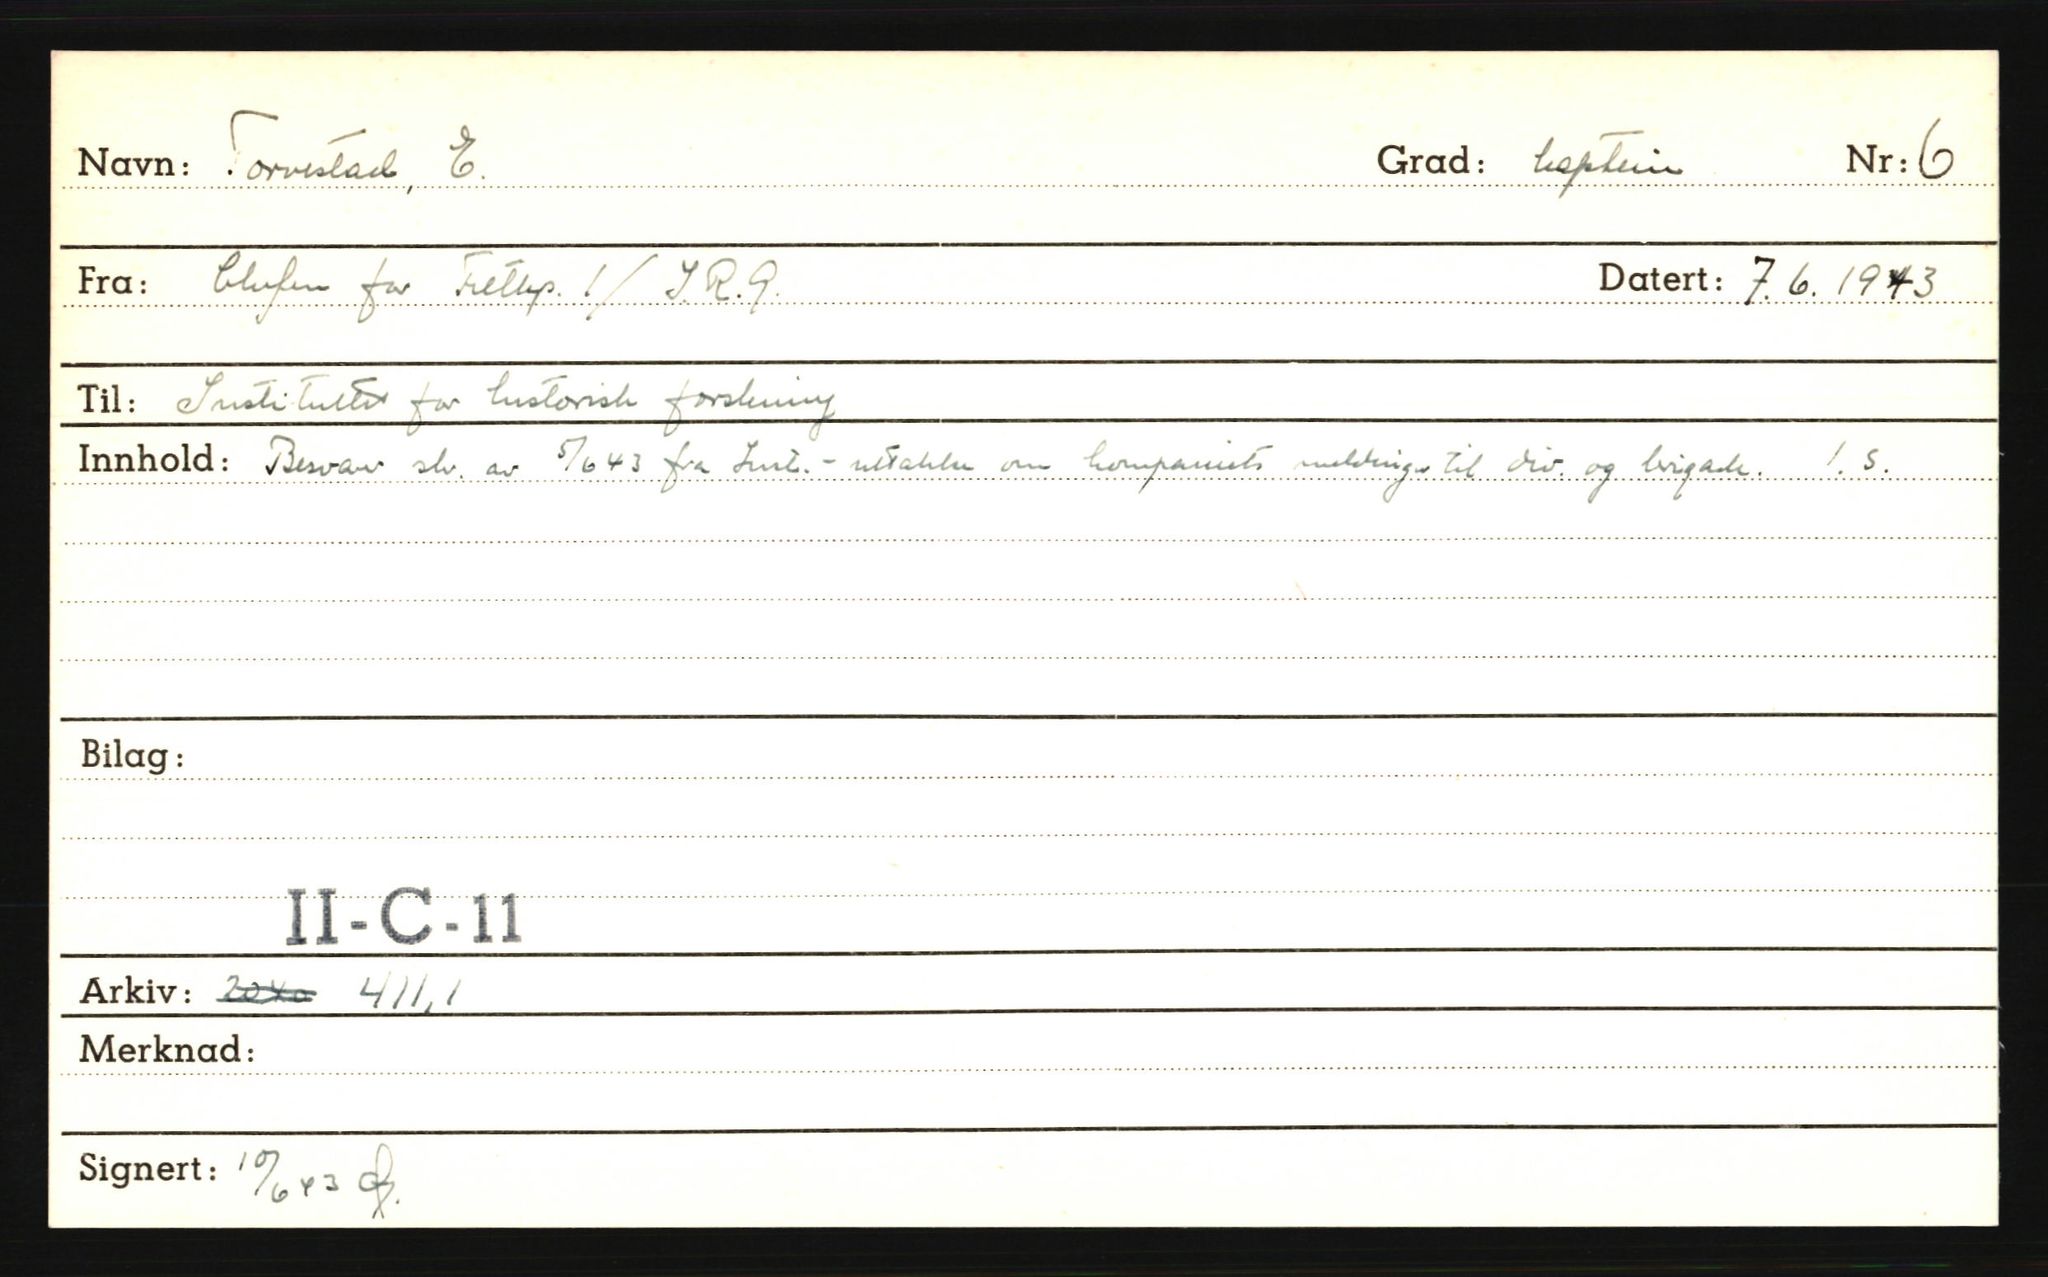 Navn: Torvestad, E. Grad: kaptein Nr: 6
Fra: Chefen for Feltkp. 1/ I.R.9. Datert: 7.6.1943
Til: Instituttet for historisk forskning
Innhold: Besvarer skr. av 5/6 43 fra Inst. - uttalelse om kompaniets meldinger til div. og brigade. 1. s.
Bilag:
II-C-11
Arkiv: 411,1
Merknad:
Signert: 10/6 43